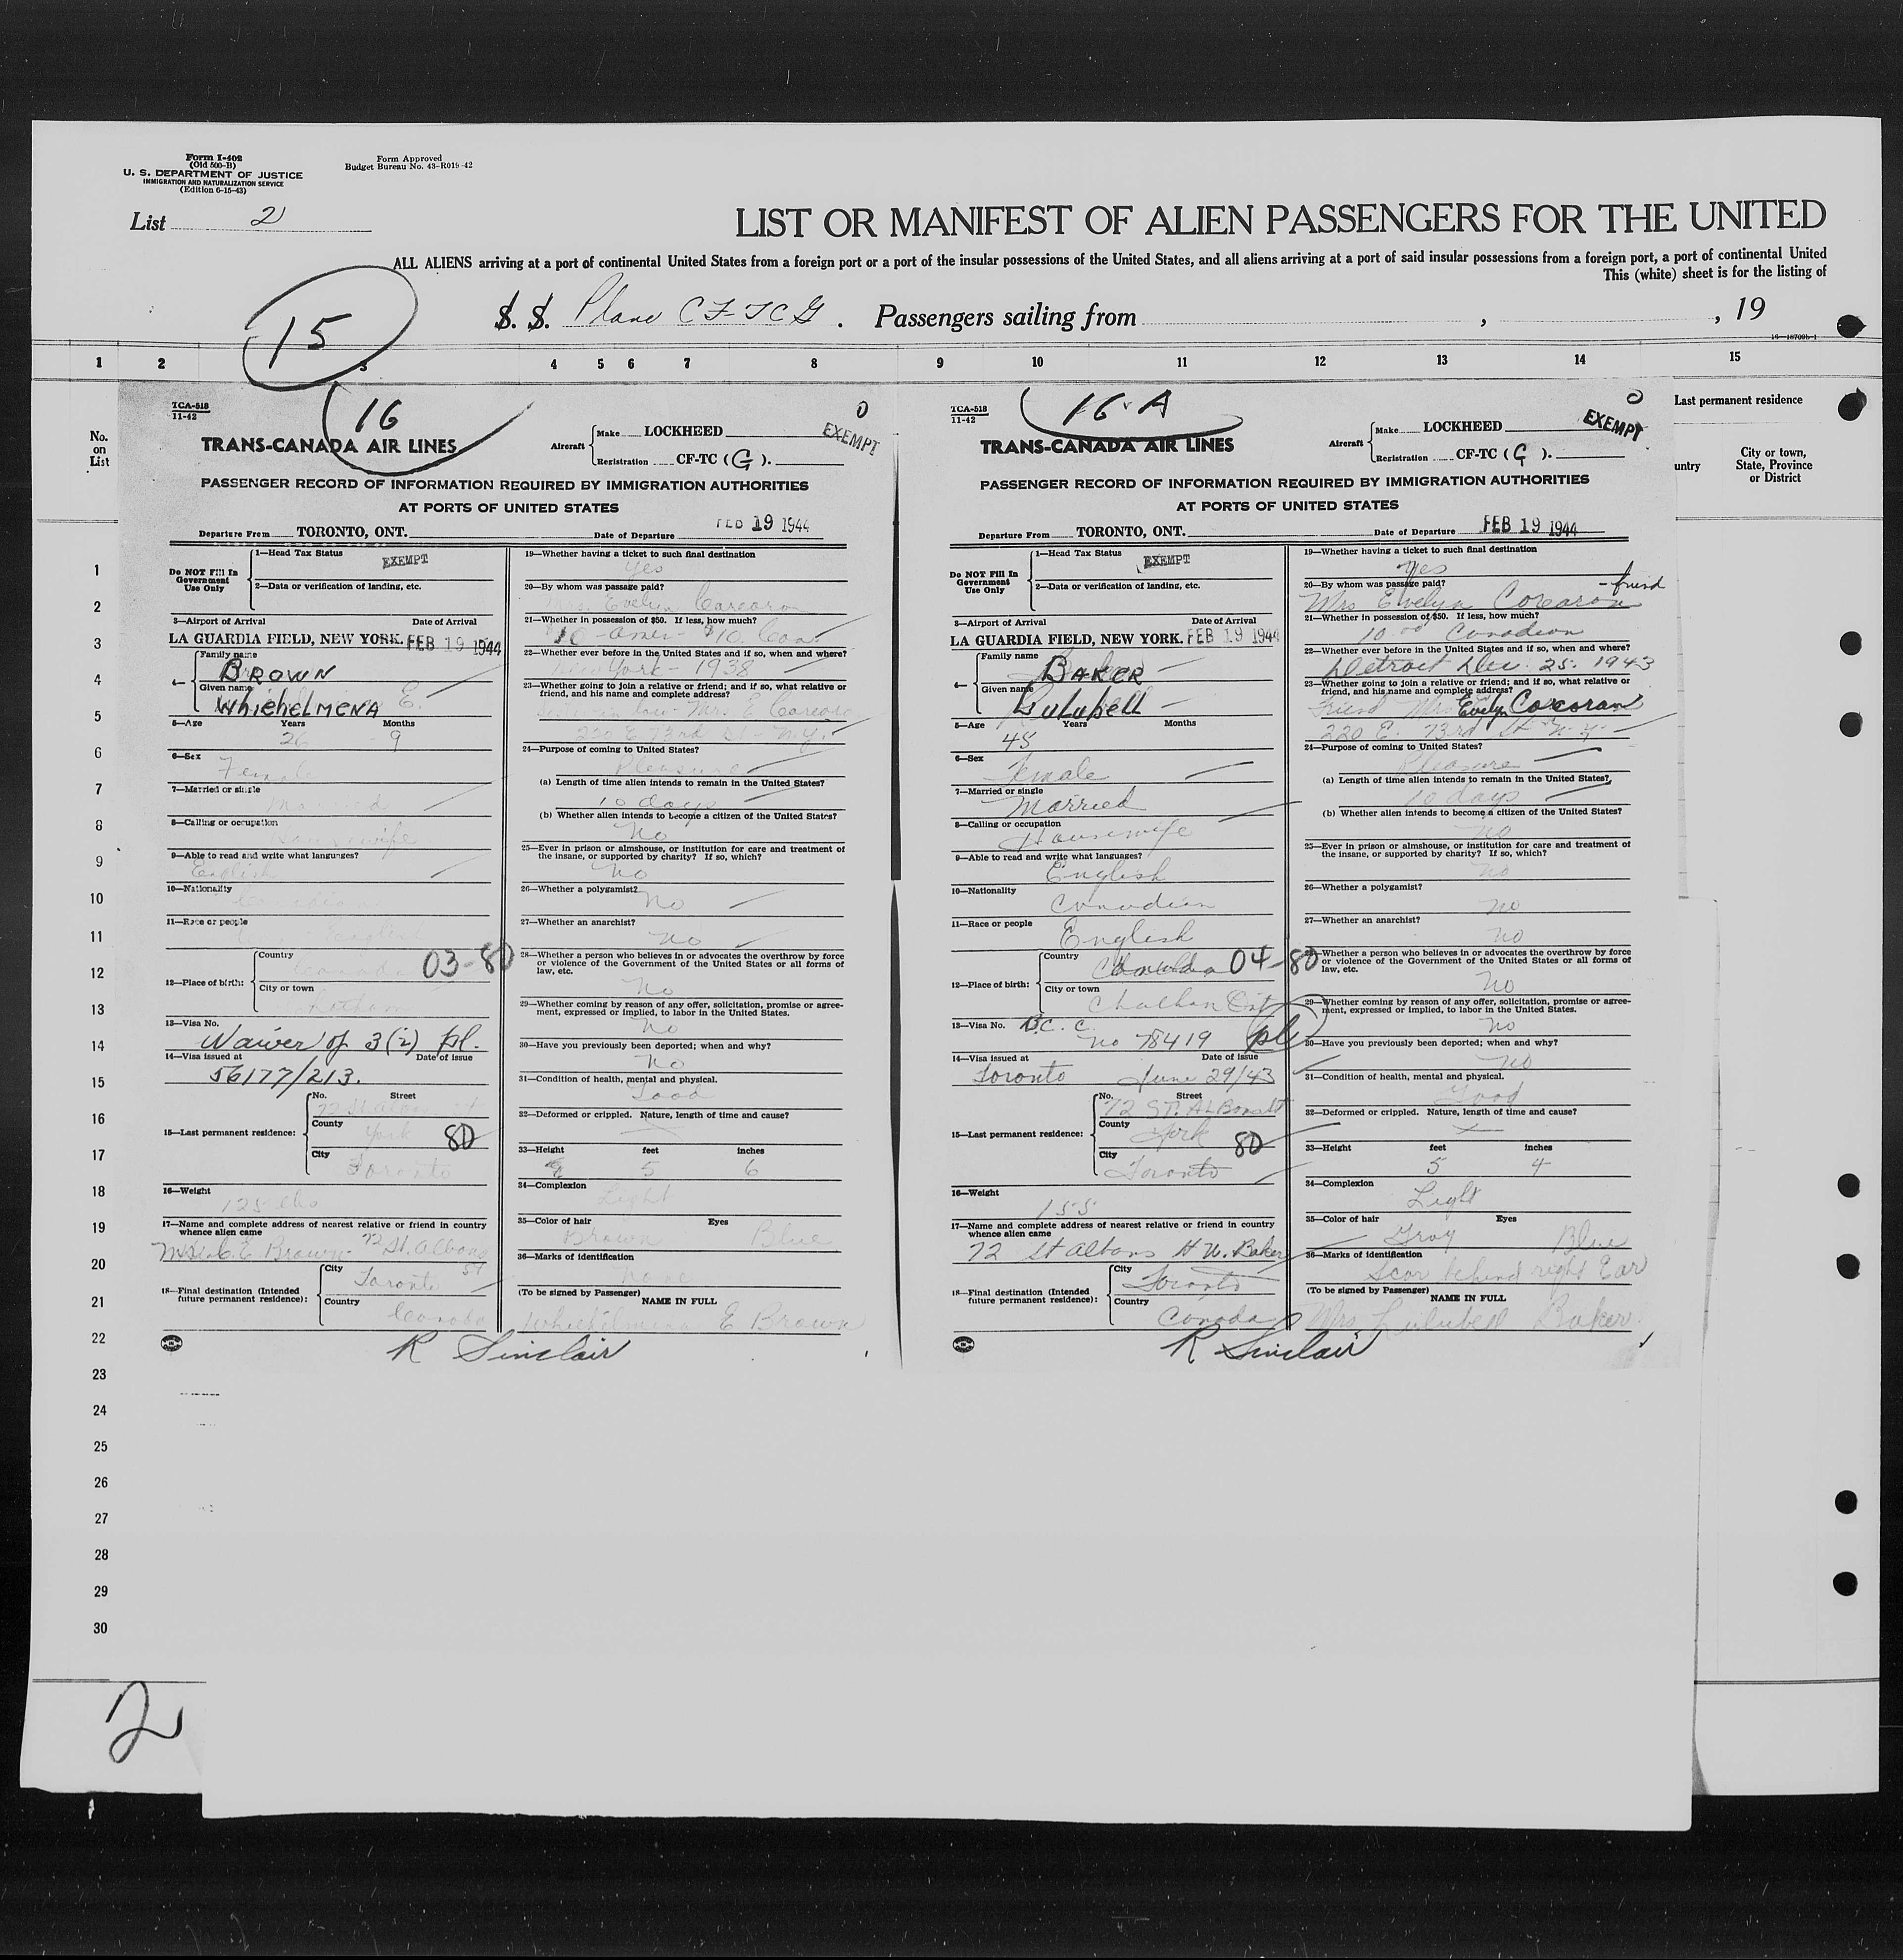 Form I-402
(Old 500-B)
U. S. DEPARTMENT OF JUSTICE
IMMIGRATION AND NATURALIZATION SERVICE
(Edition 6-15-43)
Form Approved
Budget Bureau No. 43-R019-42
List 2
LIST OR MANIFEST OF ALIEN PASSENGERS FOR THE UNITED
ALL ALIENS arriving at a port of continental United States from a foreign port or a port of the insular possessions of the United States, and all aliens arriving at a port of said insular possessions from a foreign port, a port of continental United
This (white) sheet is for the listing of
15
S. S. Plane CF-TCG. Passengers sailing from , , 19
1 2 3 4 5 6 7 8 9 10 11 12 13 14 15
No.
on
List
Last permanent residence
untry
City or town,
State, Province
or District
1
2
3
4
5
6
7
8
9
10
11
12
13
14
15
16
17
18
19
20
21
22
23
24
25
26
27
28
29
30
2
TCA-518
11-42
16
0
EXEMPT
TRANS-CANADA AIR LINES
Aircraft
Make LOCKHEED
Registration CF-TC (G).
PASSENGER RECORD OF INFORMATION REQUIRED BY IMMIGRATION AUTHORITIES
AT PORTS OF UNITED STATES
Departure From TORONTO, ONT. Date of Departure FEB 19 1944
Do NOT Fill In
Government
Use Only
1—Head Tax Status EXEMPT
2—Data or verification of landing, etc.
3—Airport of Arrival Date of Arrival
LA GUARDIA FIELD, NEW YORK. FEB 19 1944
4— Family name BROWN
Given name WHIEHELMENA E.
5—Age Years Months
26 9
6—Sex
Female
7—Married or single
Married
8—Calling or occupation
Housewife
9—Able to read and write what languages?
English
10—Nationality
Canadian
11—Race or people
English
12—Place of birth:
Country
Canada 03-80
City or town
13—Visa No.
Waiver of 3(2) pl.
14—Visa issued at Date of issue
56177/213.
15—Last permanent residence:
No. Street
72 St Albans St
County
York 80
City
Toronto
16—Weight
125 lbs
17—Name and complete address of nearest relative or friend in country
whence alien came
E. Brown 72 St. Albans
St
18—Final destination (Intended
future permanent residence):
City
Toronto
Country
Canada
R Sinclair
19—Whether having a ticket to such final destination
Yes
20—By whom was passage paid?
Mrs. Evelyn Corcoran
21—Whether in possession of $50. If less, how much?
$10 - Amer - $10. Can.
22—Whether ever before in the United States and if so, when and where?
New York - 1938
23—Whether going to join a relative or friend; and if so, what relative or
friend, and his name and complete address?
Sister in law - Mrs. E Corcoran
220 E 73rd St - N.Y.
24—Purpose of coming to United States?
Pleasure
(a) Length of time alien intends to remain in the United States?
10 days
(b) Whether alien intends to become a citizen of the United States?
No
25—Ever in prison or almshouse, or institution for care and treatment of
the insane, or supported by charity? If so, which?
No
26—Whether a polygamist?
No
27—Whether an anarchist?
No
28—Whether a person who believes in or advocates the overthrow by force
or violence of the Government of the United States or all forms of
law, etc.
No
29—Whether coming by reason of any offer, solicitation, promise or agree-
ment, expressed or implied, to labor in the United States.
No
30—Have you previously been deported; when and why?
No
31—Condition of health, mental and physical.
Good
32—Deformed or crippled. Nature, length of time and cause?
33—Height feet inches
5 6
34—Complexion
Light
35—Color of hair Eyes
Brown Blue
36—Marks of identification
None
(To be signed by Passenger) NAME IN FULL
Whiehelmena E Brown
TCA-518
11-42
16-A
0
EXEMPT
TRANS-CANADA AIR LINES
Aircraft
Make LOCKHEED
Registration CF-TC (G).
PASSENGER RECORD OF INFORMATION REQUIRED BY IMMIGRATION AUTHORITIES
AT PORTS OF UNITED STATES
Departure From TORONTO, ONT. Date of Departure FEB 19 1944
Do NOT Fill In
Government
Use Only
1—Head Tax Status EXEMPT
2—Data or verification of landing, etc.
3—Airport of Arrival Date of Arrival
LA GUARDIA FIELD, NEW YORK. FEB 19 1944
4— Family name BAKER
Given name Lulubell
5—Age Years Months
45
6—Sex
Female
7—Married or single
Married
8—Calling or occupation
Housewife
9—Able to read and write what languages?
English
10—Nationality
Canadian
11—Race or people
English
12—Place of birth:
Country
Canada 04-80
City or town
Chatham Ont
13—Visa No. B.C.C.
No 78419 pl
14—Visa issued at Date of issue
Toronto June 29/43
15—Last permanent residence:
No. Street
72 ST. Albans St
County
York 80
City
Toronto
16—Weight
155
17—Name and complete address of nearest relative or friend in country
whence alien came
72 St Albans H W. Baker
18—Final destination (Intended
future permanent residence):
City
Toronto
Country
Canada
R Sinclair
19—Whether having a ticket to such final destination
Yes
20—By whom was passage paid? - friend
Mrs Evelyn Corcoran
21—Whether in possession of $50. If less, how much?
10.00 Canadian
22—Whether ever before in the United States and if so, when and where?
Detroit Dec. 25. 1943
23—Whether going to join a relative or friend; and if so, what relative or
friend, and his name and complete address?
Friend Mrs Evelyn Corcoran
220 E. 73rd St N.Y.
24—Purpose of coming to United States?
Pleasure
(a) Length of time alien intends to remain in the United States?
10 days
(b) Whether alien intends to become a citizen of the United States?
No
25—Ever in prison or almshouse, or institution for care and treatment of
the insane, or supported by charity? If so, which?
No
26—Whether a polygamist?
No
27—Whether an anarchist?
No
28—Whether a person who believes in or advocates the overthrow by force
or violence of the Government of the United States or all forms of
law, etc.
No
29—Whether coming by reason of any offer, solicitation, promise or agree-
ment, expressed or implied, to labor in the United States.
No
30—Have you previously been deported; when and why?
No
31—Condition of health, mental and physical.
Good
32—Deformed or crippled. Nature, length of time and cause?
33—Height feet inches
5 4
34—Complexion
Light
35—Color of hair Eyes
Gray Blue
36—Marks of identification
Scar behind right Ear
(To be signed by Passenger) NAME IN FULL
Mrs. Lulubell Baker